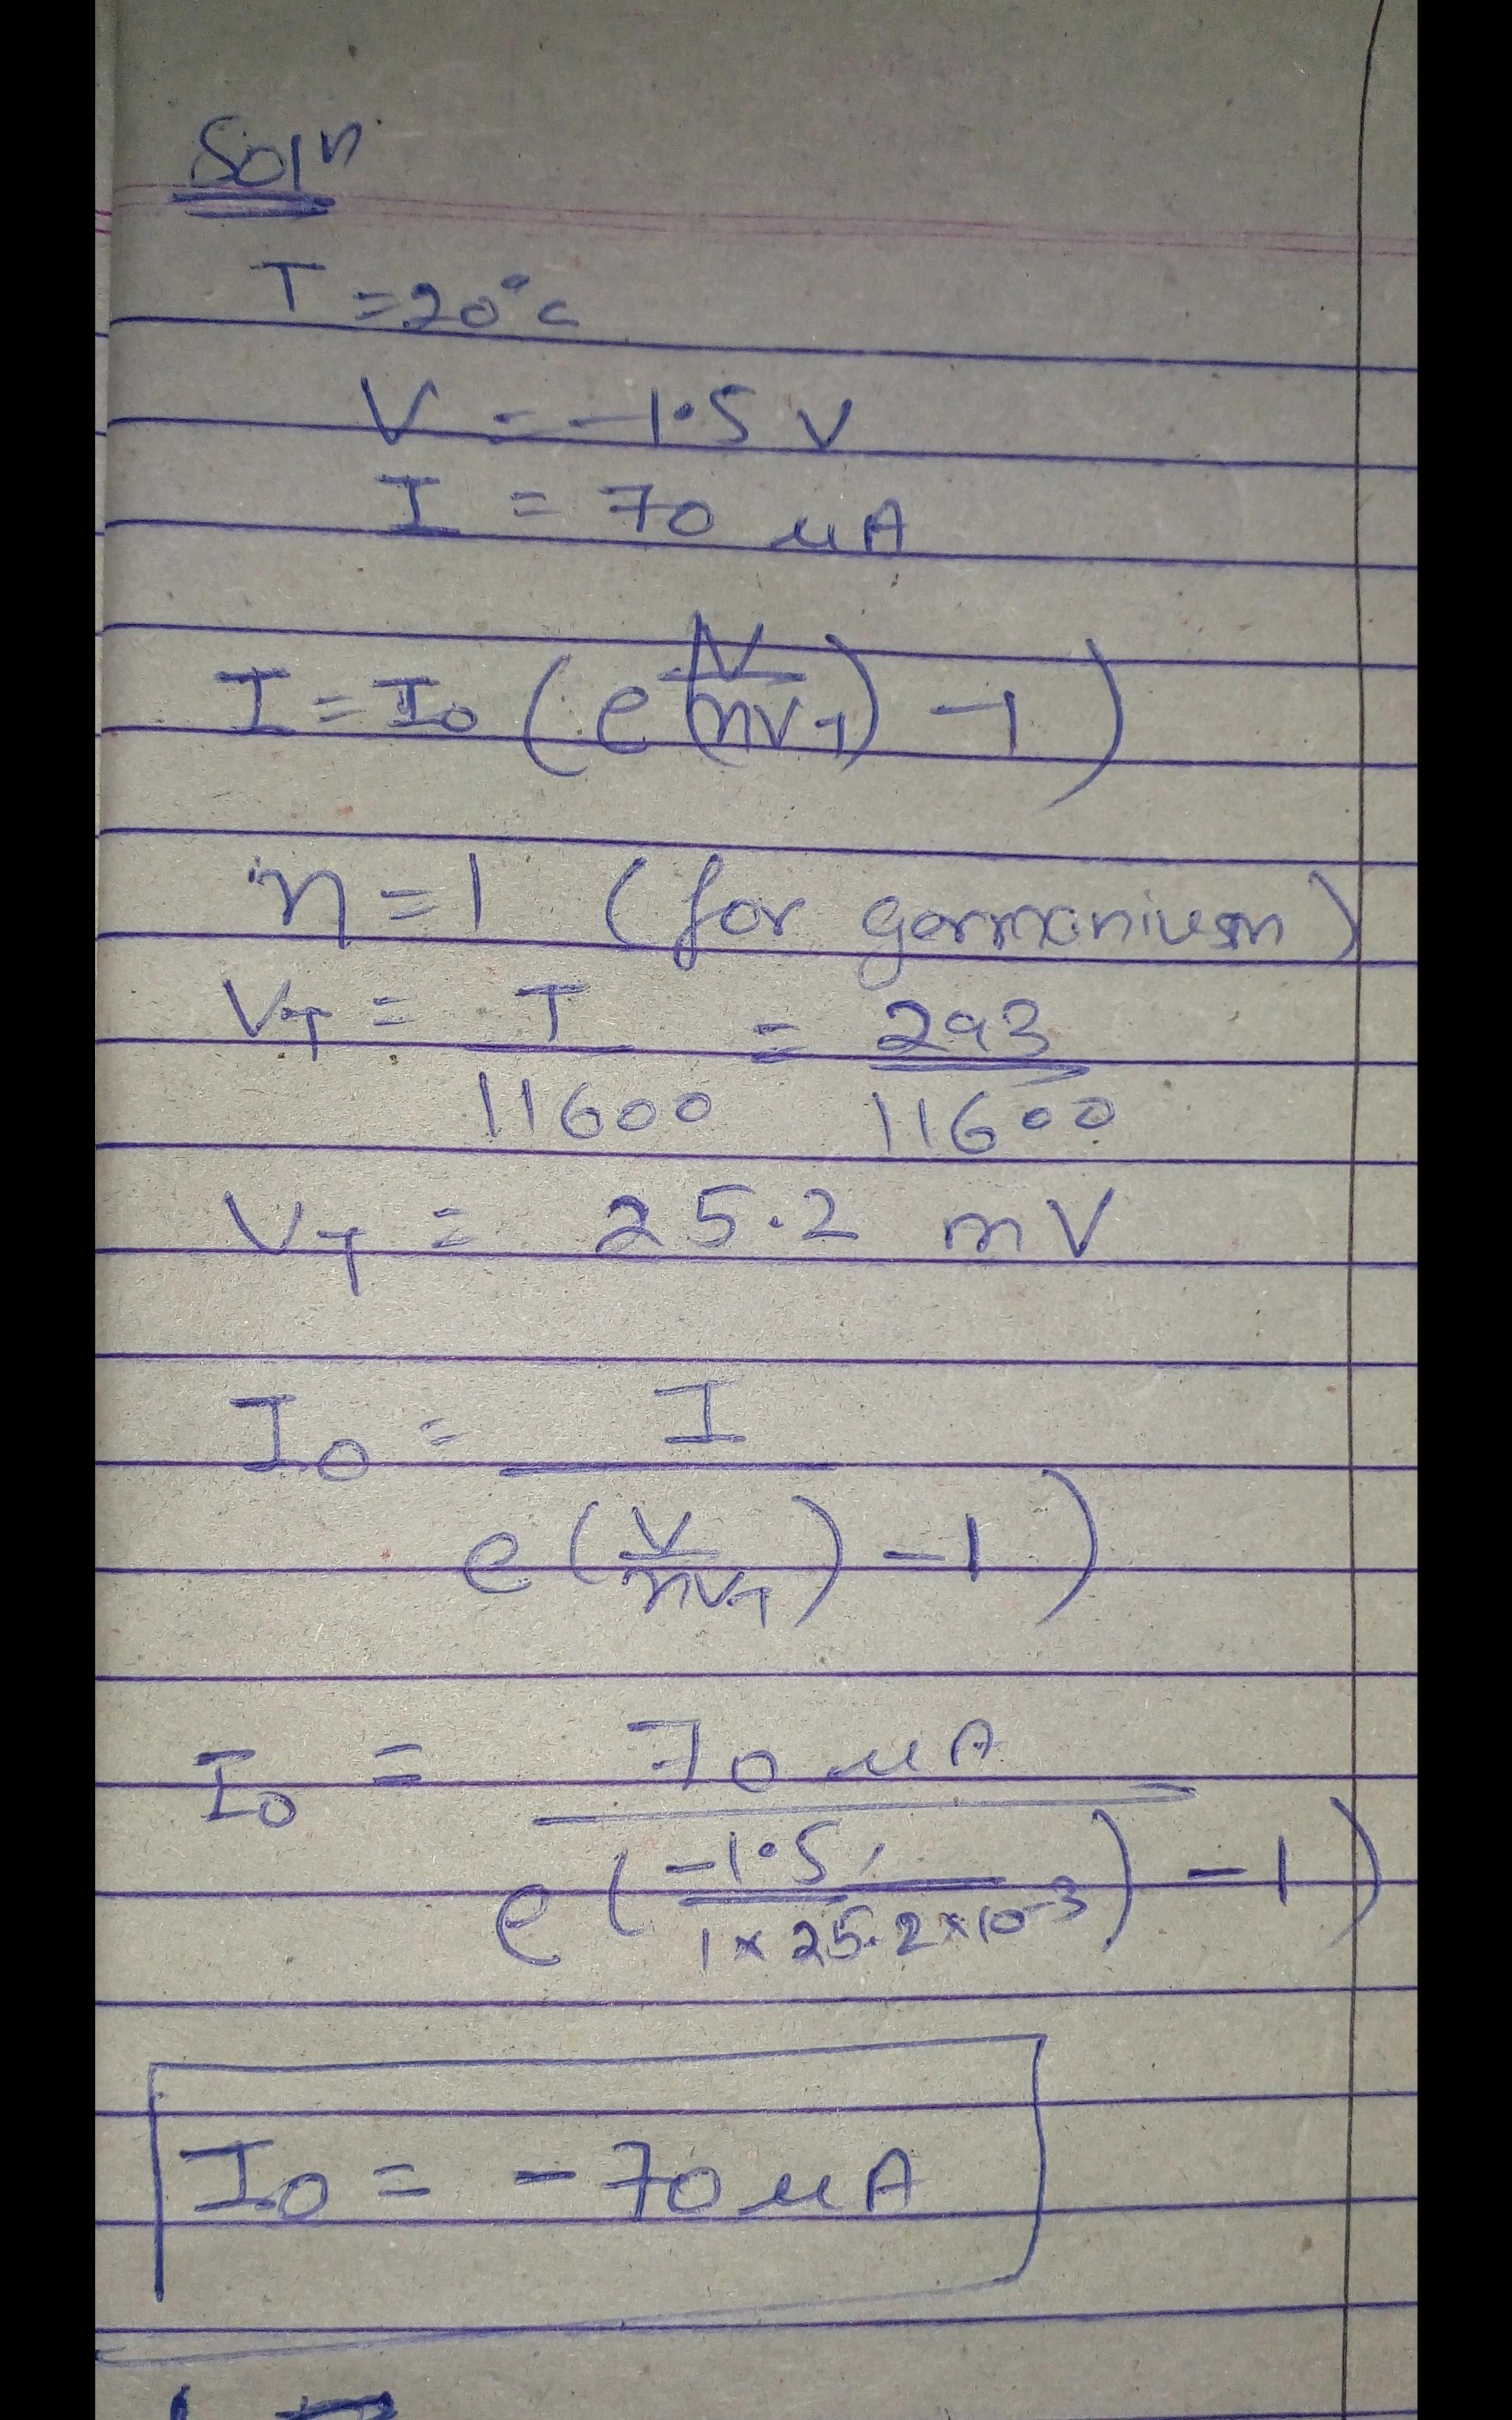 Solⁿ
T = 20°c
V = -1.5 V
I = 70 μA
I = I₀ (e^(V/nV_T) - 1)
n = 1 (for germanium)
V_T = T/11600 = 293/11600
V_T = 25.2 mV
I₀ = I / e(V/nV_T) - 1)
I₀ = 70 μA / e(-1.5/1×25.2×10⁻³) - 1)
I₀ = -70 μA